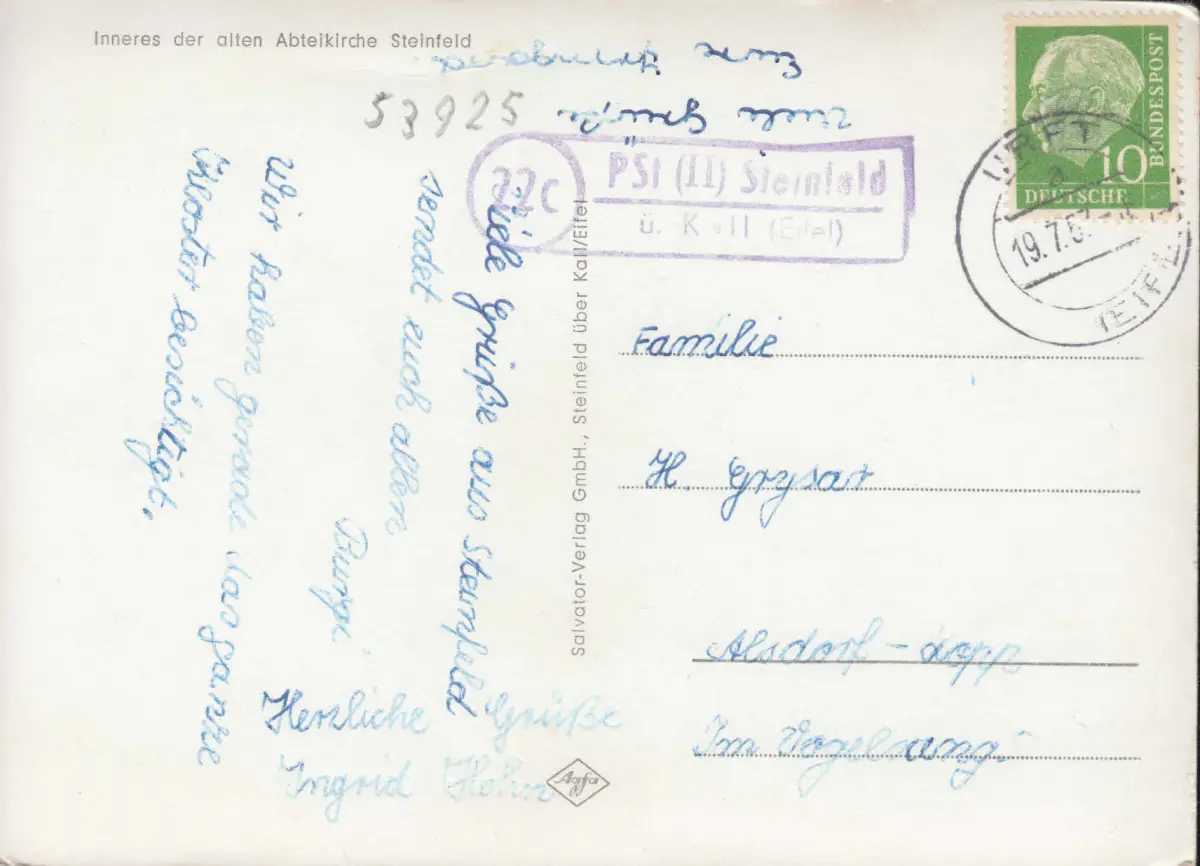 Inneres der alten Abteikirche Steinfeld
53925
Viele Grüße
22c
PSt (II) Steinfeld
ü. Kall (Eifel)
BUNDESPOST
10
DEUTSCHE
URFT
a
19.7.5
(EIFEL)
Viele Grüße aus Steinfeld
sendet euch allen
Burgi
Wir haben gerade das ganze
Kloster besichtigt.
Herzliche Grüße
Ingrid Höhn
Salvator-Verlag GmbH., Steinfeld über Kall/Eifel
Agfa
Familie
H. Grysar
Alsdorf-
Im Vogelsang